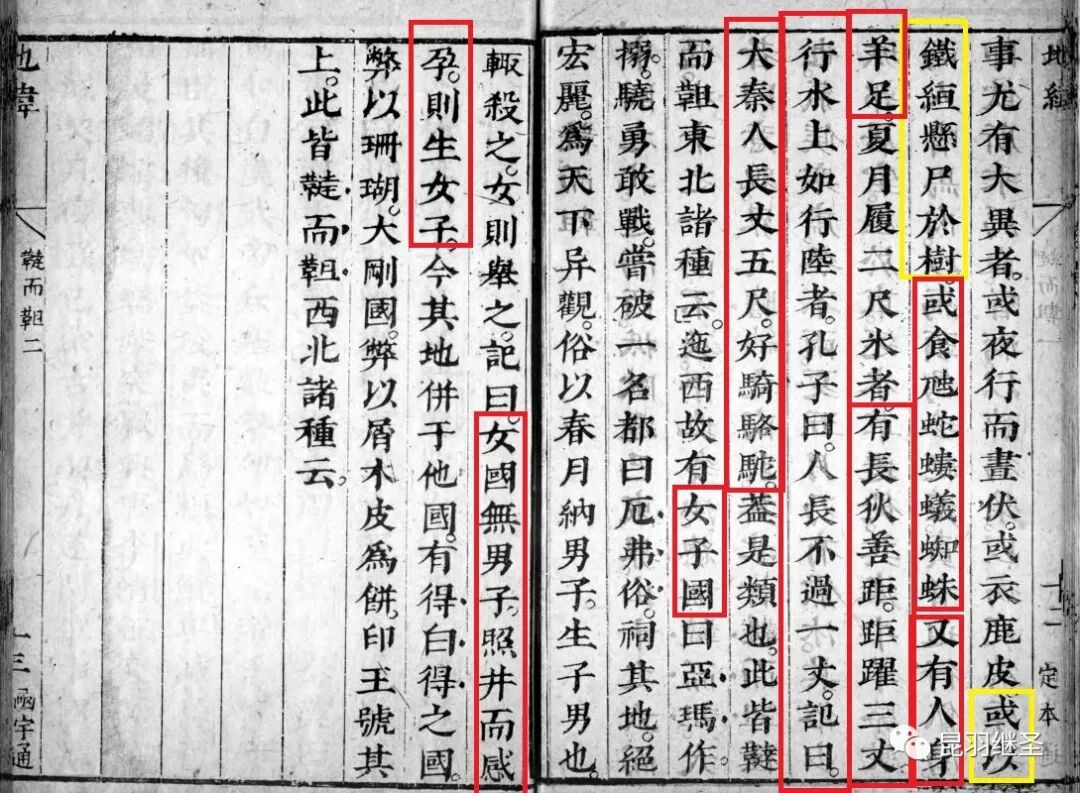 地緯
十二
定本
事尤有大異者。或夜行而晝伏。或衣鹿皮或以
鐵絙懸尸於樹。或食虺蛇螻蟻蜘蛛。又有人身
羊足。夏月履二尺氷者。有長狄善距。距躍三丈
行水上如行陸者。孔子曰。人長不過一丈。記曰。
大秦人長丈五尺。好騎駱駝。葢是類也。此皆韃
而靼東北諸種云。迤西故有女子國曰亞瑪作
搦。驍勇敢戰。嘗破一名都曰厄弗俗。祠其地。絕
宏麗。爲天下异觀。俗以春月納男子。生子男也。
輙殺之。女則舉之。記曰。女國無男子。照井而感
孕。則生女子。今其地併于他國。有得白得之國。
弊以珊瑚。大剛國。弊以屑木皮爲餅。印王號其
上。此皆韃而靼西北諸種云。
地緯
韃而靼二
十三
函宇通
昆羽继圣